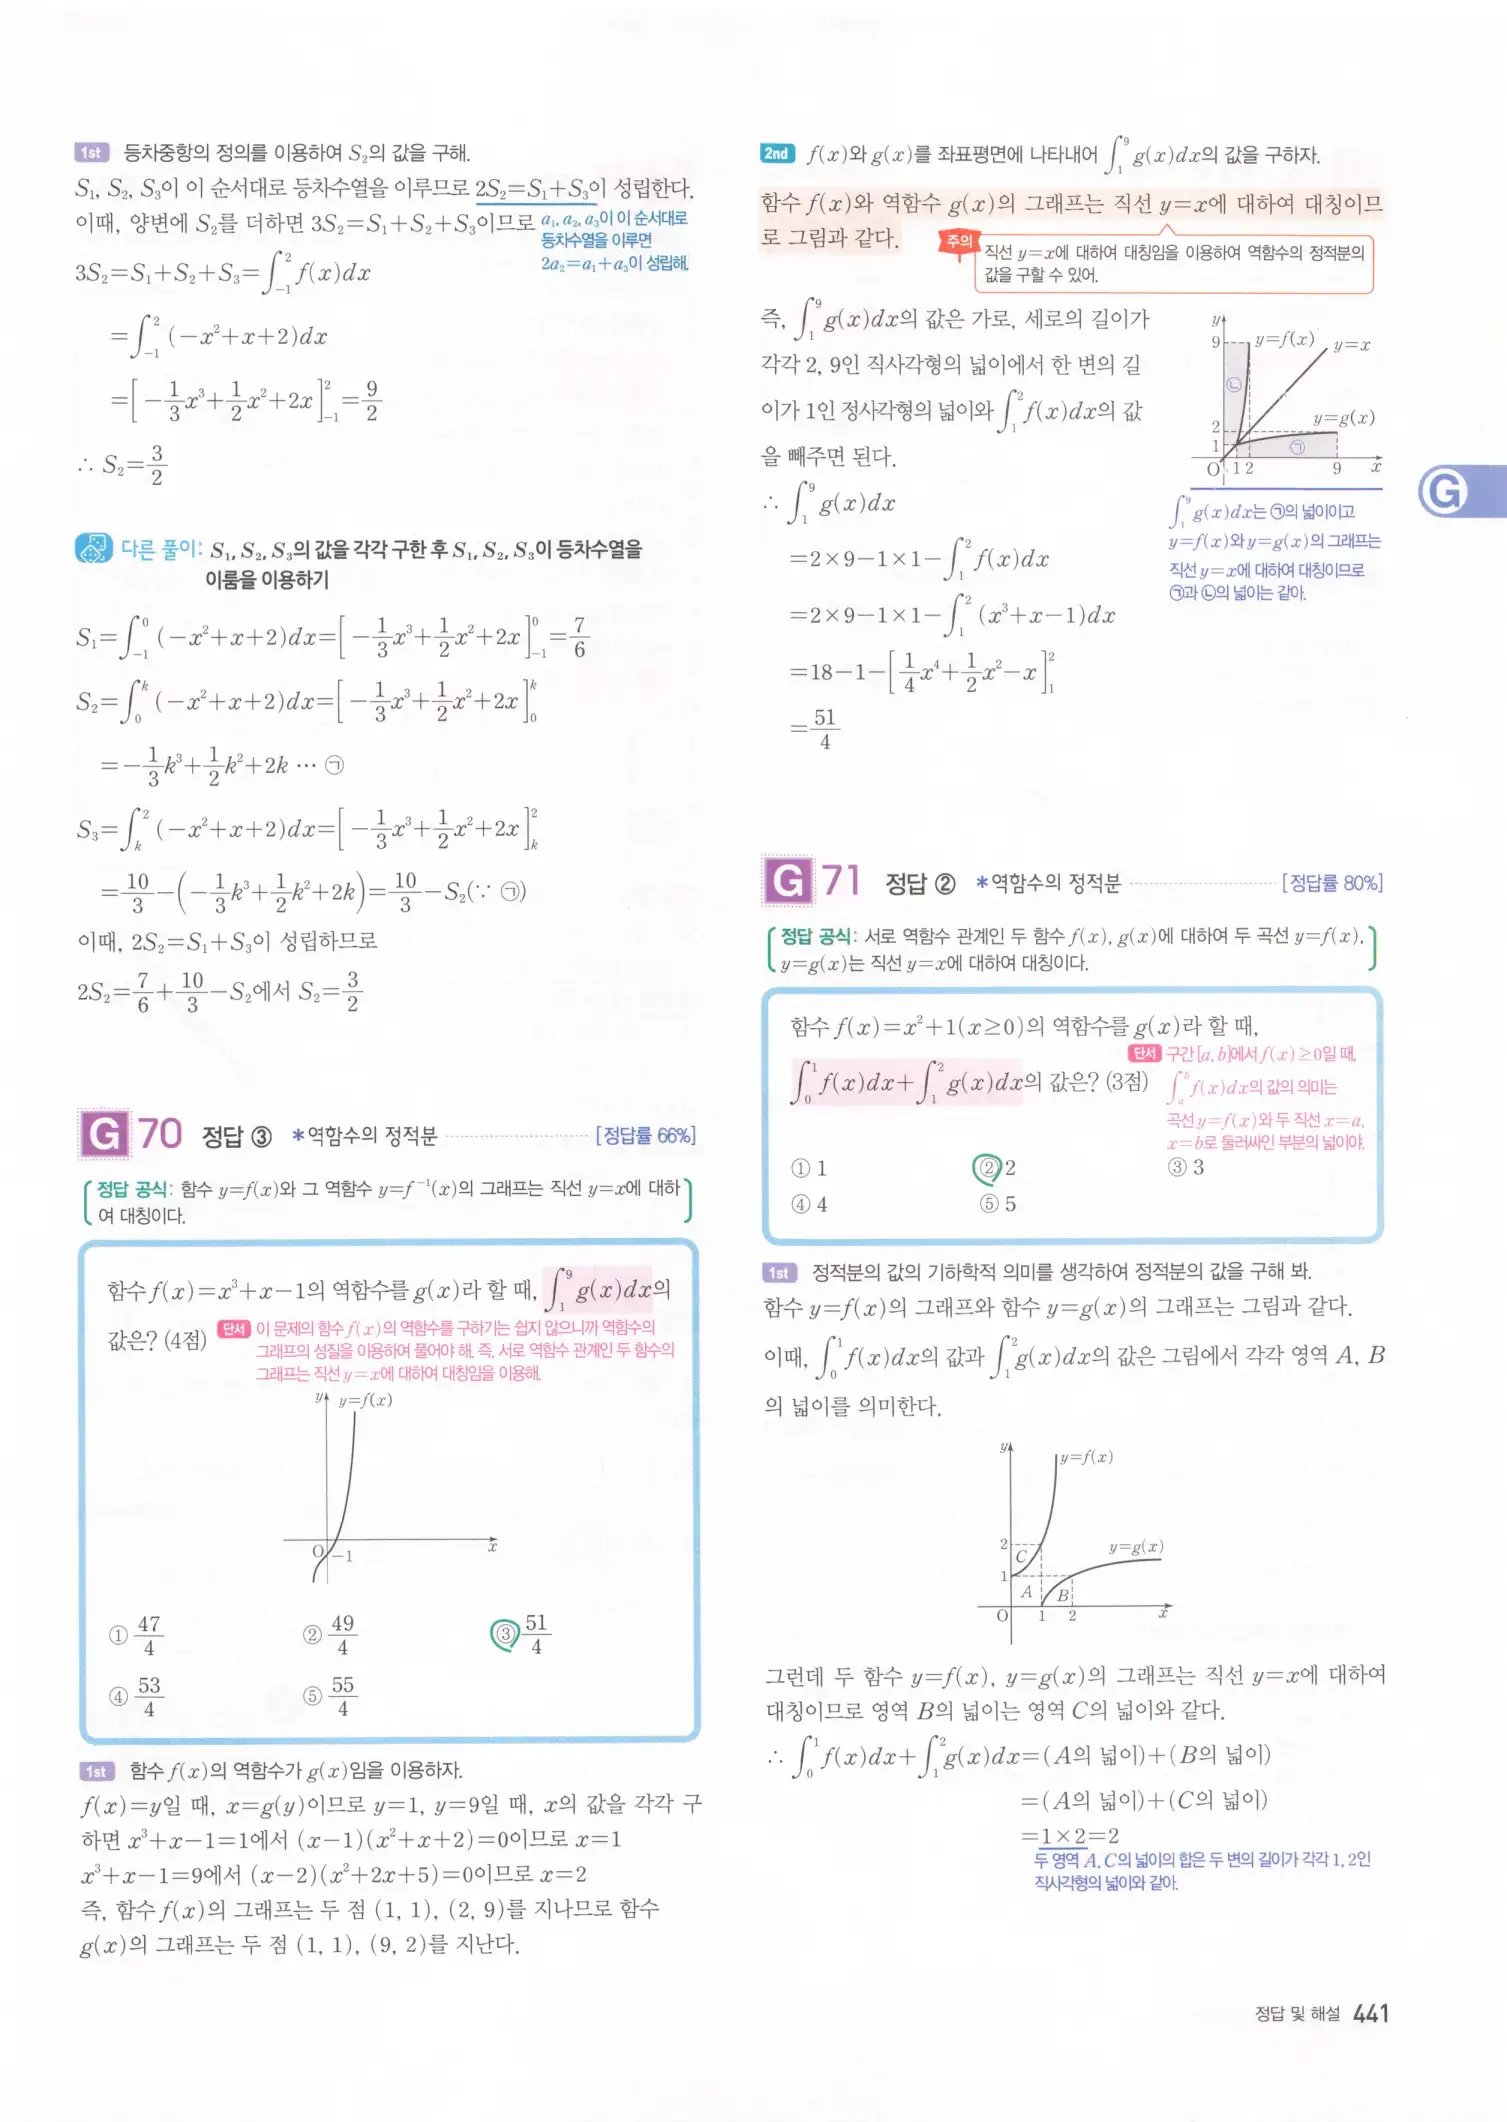 1st 등차중항의 정의를 이용하여 S₂의 값을 구해.
S₁, S₂, S₃이 이 순서대로 등차수열을 이루므로 2S₂=S₁+S₃이 성립한다.
이때, 양변에 S₂를 더하면 3S₂=S₁+S₂+S₃이므로
a₁, a₂, a₃이 이 순서대로
등차수열을 이루면
2a₂=a₁+a₃이 성립해.
3S₂=S₁+S₂+S₃=∫₋₁² f(x)dx
=∫₋₁² (−x²+x+2)dx
=[−1/3x³+1/2x²+2x]₋₁²=9/2
∴ S₂=3/2
다른 풀이: S₁, S₂, S₃의 값을 각각 구한 후 S₁, S₂, S₃이 등차수열을
이룸을 이용하기
S₁=∫₋₁⁰ (−x²+x+2)dx=[−1/3x³+1/2x²+2x]₋₁⁰=7/6
S₂=∫₀ᵏ (−x²+x+2)dx=[−1/3x³+1/2x²+2x]₀ᵏ
=−1/3k³+1/2k²+2k ⋯ ㉠
S₃=∫ₖ² (−x²+x+2)dx=[−1/3x³+1/2x²+2x]ₖ²
=10/3−(−1/3k³+1/2k²+2k)=10/3−S₂(∵ ㉠)
이때, 2S₂=S₁+S₃이 성립하므로
2S₂=7/6+10/3−S₂에서 S₂=3/2
G 70 정답 ③ *역함수의 정적분 [정답률 66%]
정답 공식: 함수 y=f(x)와 그 역함수 y=f⁻¹(x)의 그래프는 직선 y=x에 대하
여 대칭이다.
함수 f(x)=x³+x−1의 역함수를 g(x)라 할 때, ∫₁⁹ g(x)dx의
값은? (4점)
단서 이 문제의 함수 f(x)의 역함수를 구하기는 쉽지 않으니까 역함수의
그래프의 성질을 이용하여 풀어야 해. 즉, 서로 역함수 관계인 두 함수의
그래프는 직선 y=x에 대하여 대칭임을 이용해.
y y=f(x)
O −1 x
① 47/4 ② 49/4 ③ 51/4
④ 53/4 ⑤ 55/4
1st 함수 f(x)의 역함수가 g(x)임을 이용하자.
f(x)=y일 때, x=g(y)이므로 y=1, y=9일 때, x의 값을 각각 구
하면 x³+x−1=1에서 (x−1)(x²+x+2)=0이므로 x=1
x³+x−1=9에서 (x−2)(x²+2x+5)=0이므로 x=2
즉, 함수 f(x)의 그래프는 두 점 (1, 1), (2, 9)를 지나므로 함수
g(x)의 그래프는 두 점 (1, 1), (9, 2)를 지난다.
2nd f(x)와 g(x)를 좌표평면에 나타내어 ∫₁⁹ g(x)dx의 값을 구하자.
함수 f(x)와 역함수 g(x)의 그래프는 직선 y=x에 대하여 대칭이므
로 그림과 같다.
주의 직선 y=x에 대하여 대칭임을 이용하여 역함수의 정적분의
값을 구할 수 있어.
즉, ∫₁⁹ g(x)dx의 값은 가로, 세로의 길이가
각각 2, 9인 직사각형의 넓이에서 한 변의 길
이가 1인 정사각형의 넓이와 ∫₁² f(x)dx의 값
을 빼주면 된다.
y
9 y=f(x) y=x
㉡
2 y=g(x)
1 ㉠
O 1 2 9 x
∫₁⁹ g(x)dx는 ㉠의 넓이이고
y=f(x)와 y=g(x)의 그래프는
직선 y=x에 대하여 대칭이므로
㉠과 ㉡의 넓이는 같아.
∴ ∫₁⁹ g(x)dx
=2×9−1×1−∫₁² f(x)dx
=2×9−1×1−∫₁² (x³+x−1)dx
=18−1−[1/4x⁴+1/2x²−x]₁²
=51/4
G
G 71 정답 ② *역함수의 정적분 [정답률 80%]
정답 공식: 서로 역함수 관계인 두 함수 f(x), g(x)에 대하여 두 곡선 y=f(x),
y=g(x)는 직선 y=x에 대하여 대칭이다.
함수 f(x)=x²+1(x≥0)의 역함수를 g(x)라 할 때,
∫₀¹ f(x)dx+∫₁² g(x)dx의 값은? (3점)
단서 구간 [a, b]에서 f(x)≥0일 때,
∫ₐᵇ f(x)dx의 값의 의미는
곡선 y=f(x)와 두 직선 x=a,
x=b로 둘러싸인 부분의 넓이야.
① 1 ② 2 ③ 3
④ 4 ⑤ 5
1st 정적분의 값의 기하학적 의미를 생각하여 정적분의 값을 구해 봐.
함수 y=f(x)의 그래프와 함수 y=g(x)의 그래프는 그림과 같다.
이때, ∫₀¹ f(x)dx의 값과 ∫₁² g(x)dx의 값은 그림에서 각각 영역 A, B
의 넓이를 의미한다.
y
y=f(x)
2 C y=g(x)
1 A B
O 1 2 x
그런데 두 함수 y=f(x), y=g(x)의 그래프는 직선 y=x에 대하여
대칭이므로 영역 B의 넓이는 영역 C의 넓이와 같다.
∴ ∫₀¹ f(x)dx+∫₁² g(x)dx=(A의 넓이)+(B의 넓이)
=(A의 넓이)+(C의 넓이)
=1×2=2
두 영역 A, C의 넓이의 합은 두 변의 길이가 각각 1, 2인
직사각형의 넓이와 같아.
정답 및 해설 441